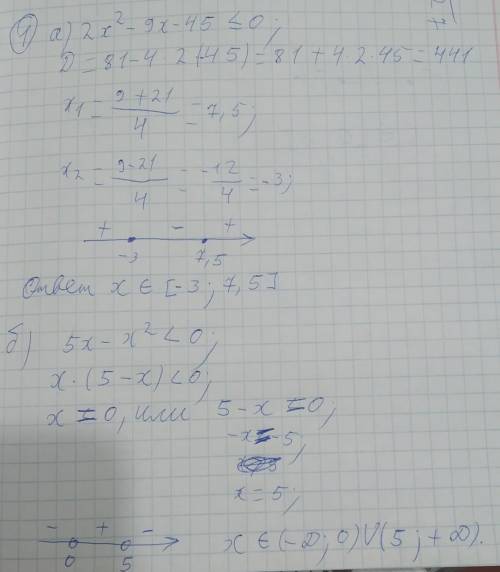 ① а) 2x² - 9x - 45 ≤ 0;
D = 81 - 4 2(-45) = 81 + 4·2·45 = 441
x₁ = (9+21)/4 = 7,5;
x₂ = (9-21)/4 = -12/4 = -3;
+ - +
-3 7,5
Ответ x ∈ [-3; 7,5]
б) 5x - x² < 0;
x·(5-x) < 0;
x = 0, или 5 - x = 0;
-x = -5;
x = 5;
- + -
0 5
x ∈ (-∞; 0) ∪ (5; +∞).